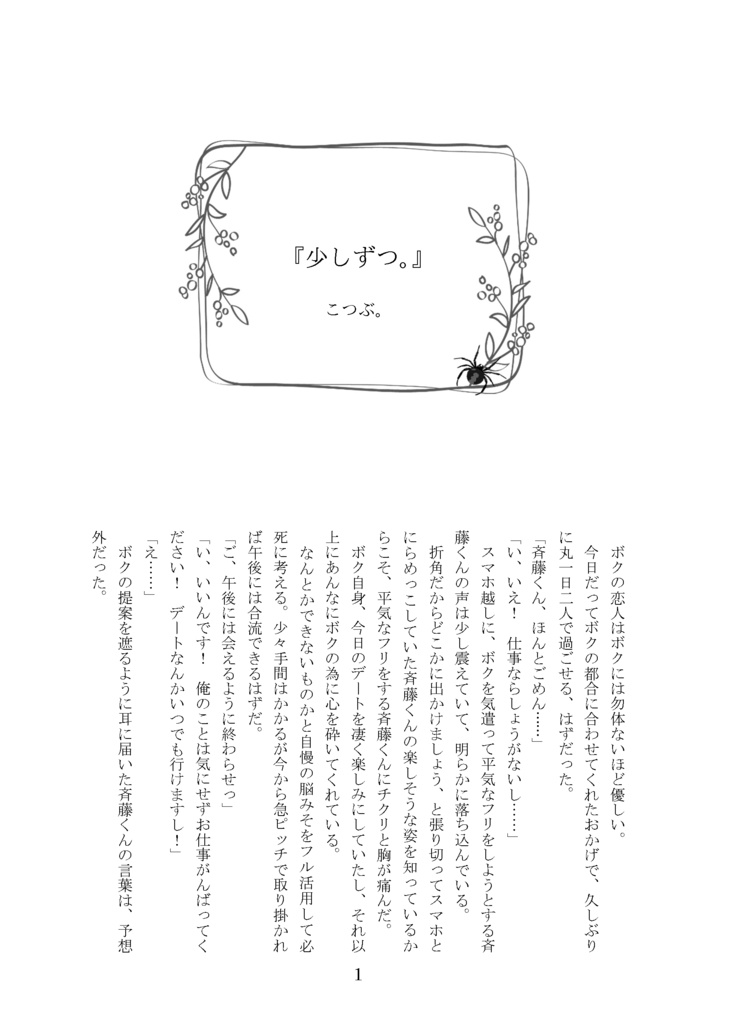 『少しずつ。』
こつぶ。
ボクの恋人はボクには勿体ないほど優しい。
今日だってボクの都合に合わせてくれたおかげで、久しぶり
に丸一日二人で過ごせる、はずだった。
「斉藤くん、ほんとごめん……」
「い、いえ！　仕事ならしょうがないし……」
スマホ越しに、ボクを気遣って平気なフリをしようとする斉
藤くんの声は少し震えていて、明らかに落ち込んでいる。
折角だからどこかに出かけましょう、と張り切ってスマホと
にらめっこしていた斉藤くんの楽しそうな姿を知っているか
らこそ、平気なフリをする斉藤くんにチクリと胸が痛んだ。
ボク自身、今日のデートを凄く楽しみにしていたし、それ以
上にあんなにボクの為に心を砕いてくれている。
なんとかできないものかと自慢の脳みそをフル活用して必
死に考える。少々手間はかかるが今から急ピッチで取り掛かれ
ば午後には合流できるはずだ。
「ご、午後には会えるように終わらせっ」
「い、いいんです！　俺のことは気にせずお仕事がんばってく
ださい！　デートなんかいつでも行けますし！」
「え……」
ボクの提案を遮るように耳に届いた斉藤くんの言葉は、予想
外だった。
1